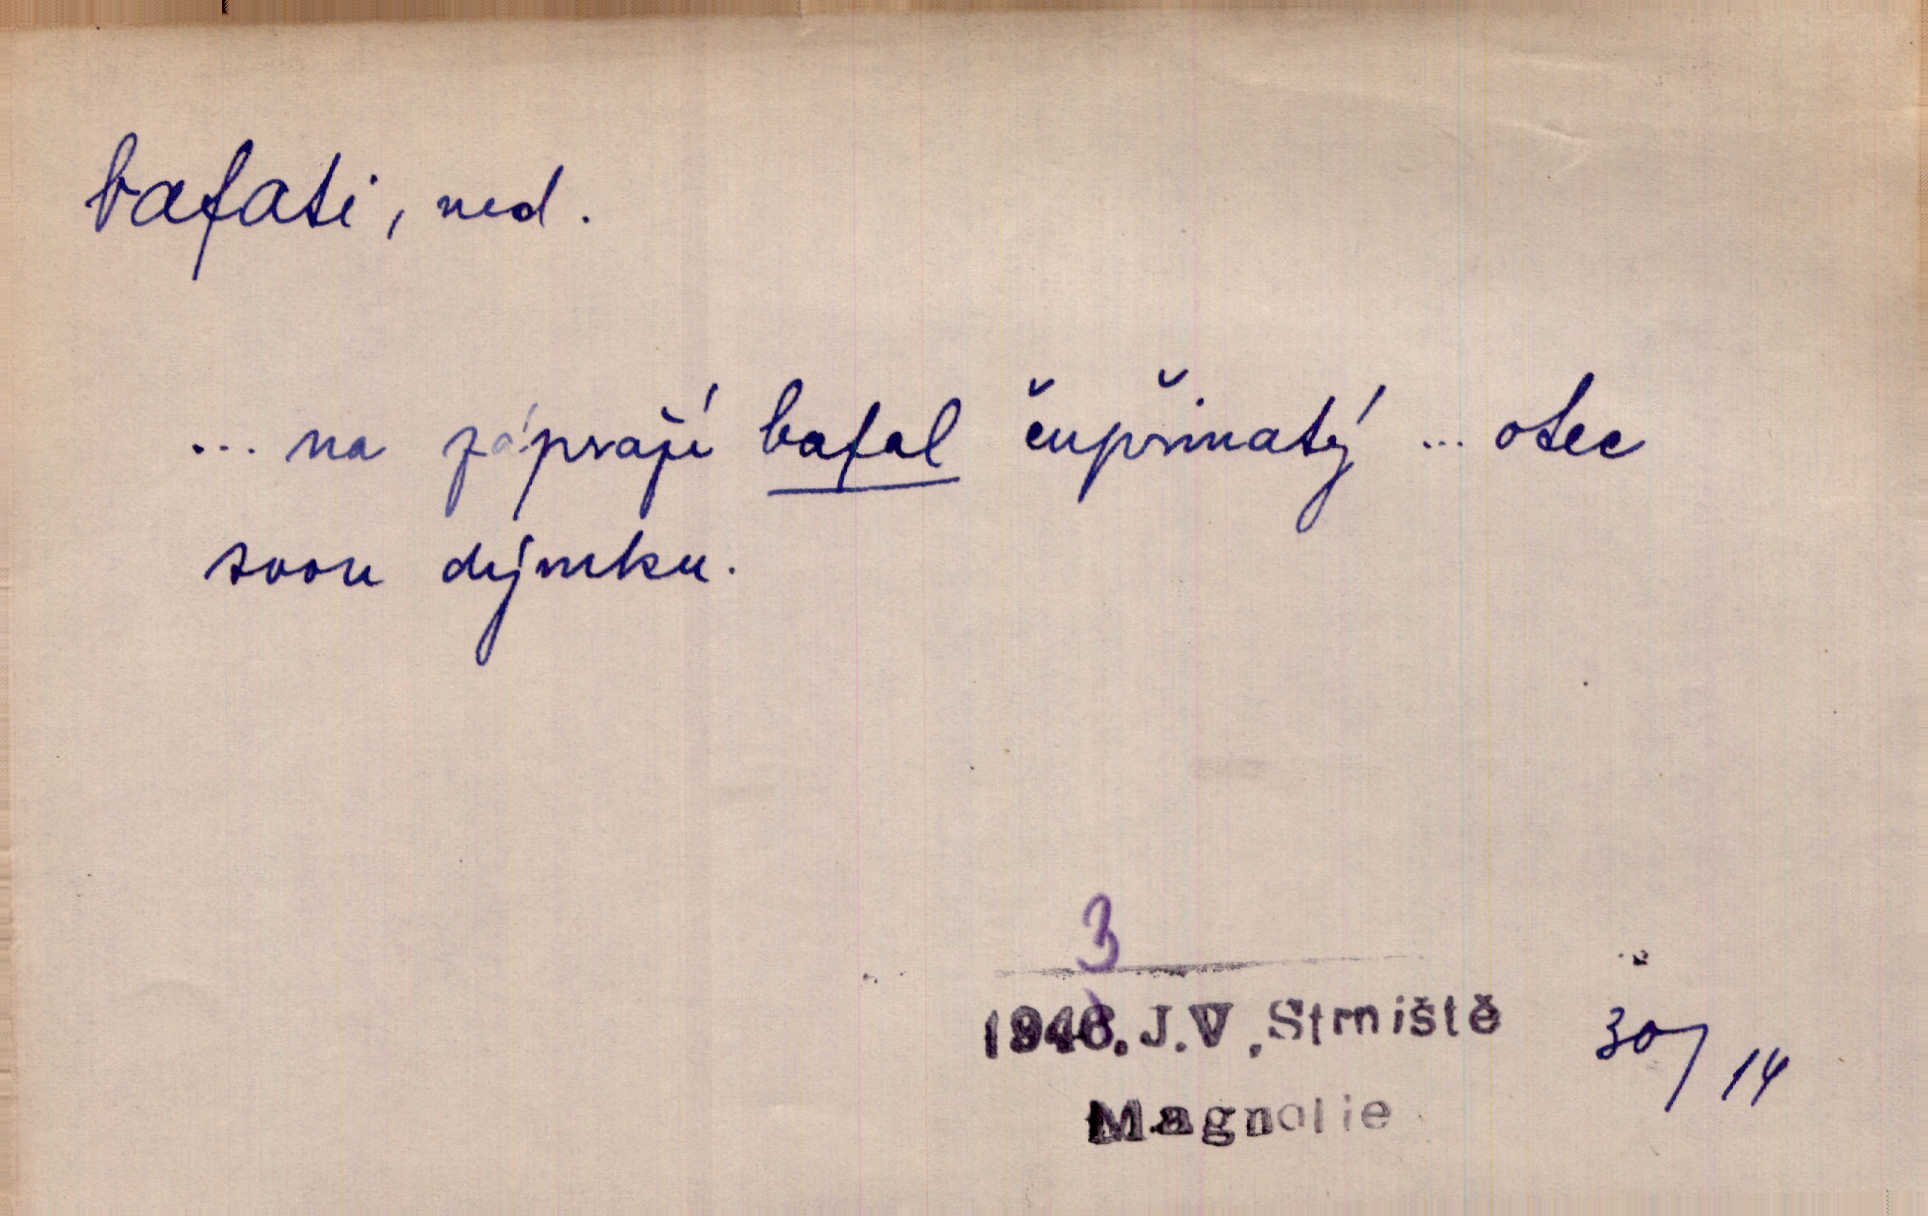 bafati, ned.
... na zápraží bafal čupřinatý ... otec
svou dýmku.
3
1946. J.V. Strniště
30/14
Magnolie